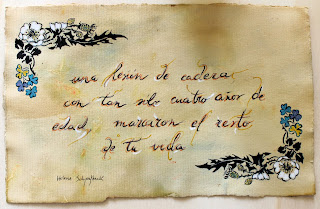 una lesión de cadera
con tan solo cuatro años de
edad, marcaron el resto
de tu vida